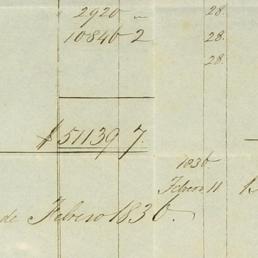 2920 "
28.
10846 2
28.
28.
$51139 7.
1836
Febrero 11
de Febrero 1836.